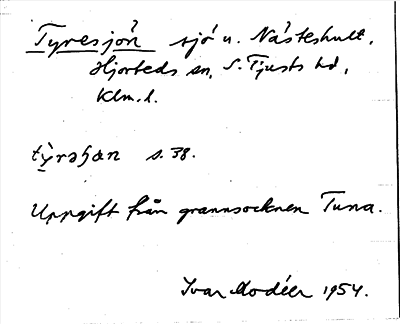 Tyresjön sjö u. Nästeshult,
Hjorteds sn, S. Tjusts hd,
Klm. l.
tỳrəʃɑn s. 38.
Uppgift från grannsocknen Tuna.
Ivar Modéer 1954.